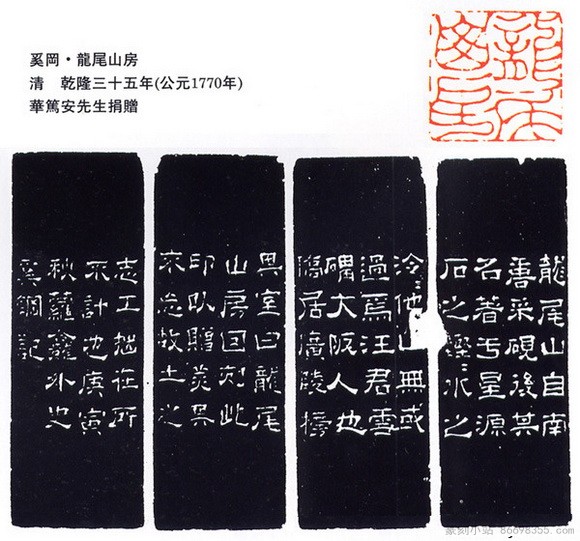 奚岡·龍尾山房
清 乾隆三十五年(公元1770年)
華篤安先生捐贈
龍尾山房
龍尾山自南
唐采硯後其
名著于星源
石之 〻水之
泠〻他山無或
過焉汪君雪
礀大阪人也
僑居廣陵榜
其室曰龍尾
山房因刻此
印以贈美其
忘故土之
志工拙在所
不計也庚寅
秋蘿龕外史
奚鋼記
篆刻小站 86698355.com